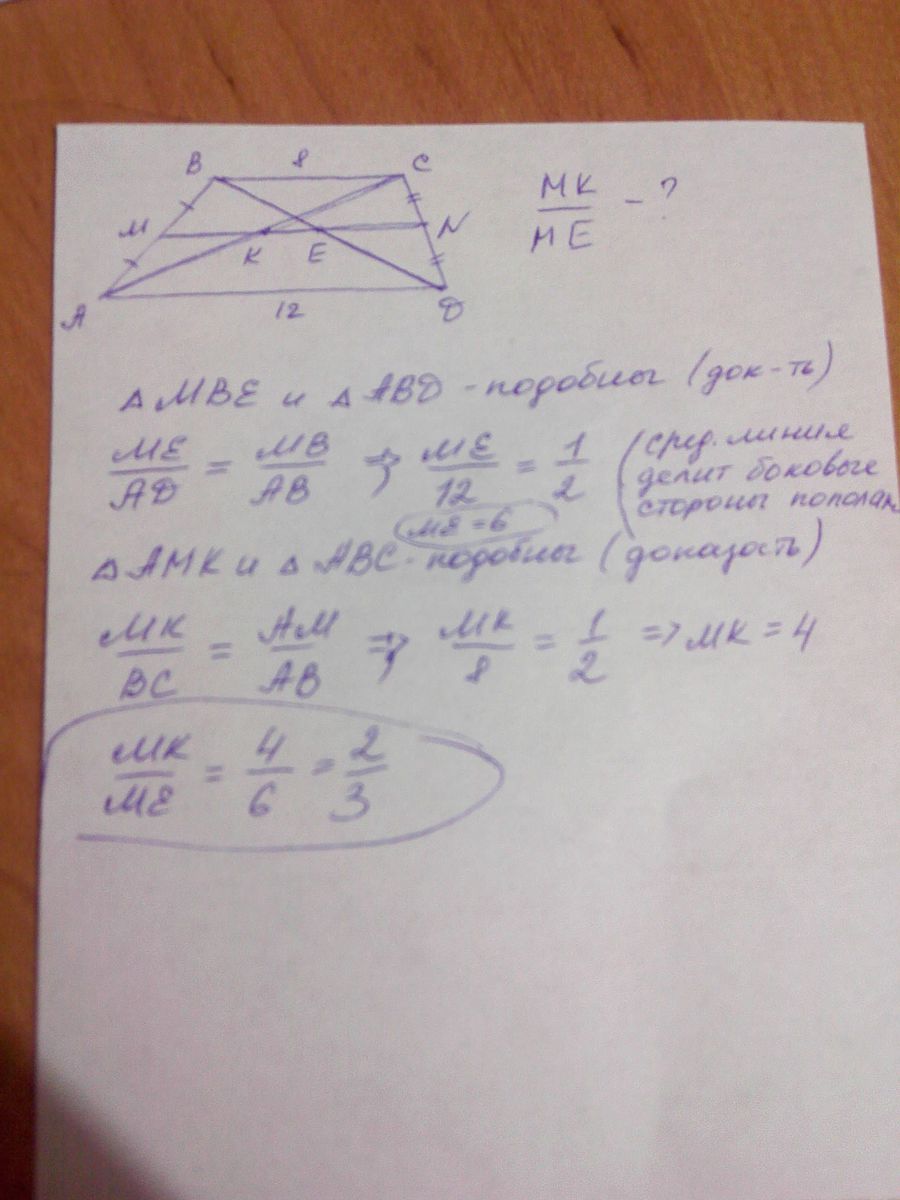 B 8 C
M N
K E
A 12 D
MK/ME - ?
△ MBE и △ ABD - подобны (док-ть)
ME/AD = MB/AB => ME/12 = 1/2 (сред. линия
делит боковые
стороны пополам
ME = 6
△ AMK и △ ABC - подобны (доказать)
MK/BC = AM/AB => MK/8 = 1/2 => MK = 4
MK/ME = 4/6 = 2/3